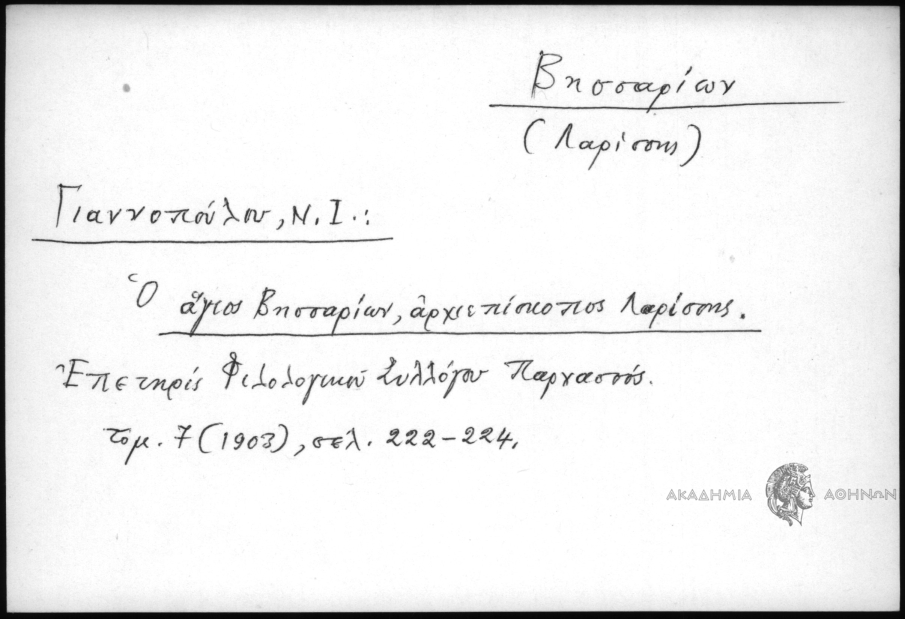 Βησσαρίων
(Λαρίσσης)
Γιαννοπούλου, Ν. Ι.:
Ὁ ἅγιος Βησσαρίων, ἀρχιεπίσκοπος Λαρίσσης.
Ἐπετηρίς Φιλολογικοῦ Συλλόγου Παρνασσός.
τομ. 7 (1903), σελ. 222-224.
ΑΚΑΔΗΜΙΑ ΑΘΗΝΩΝ